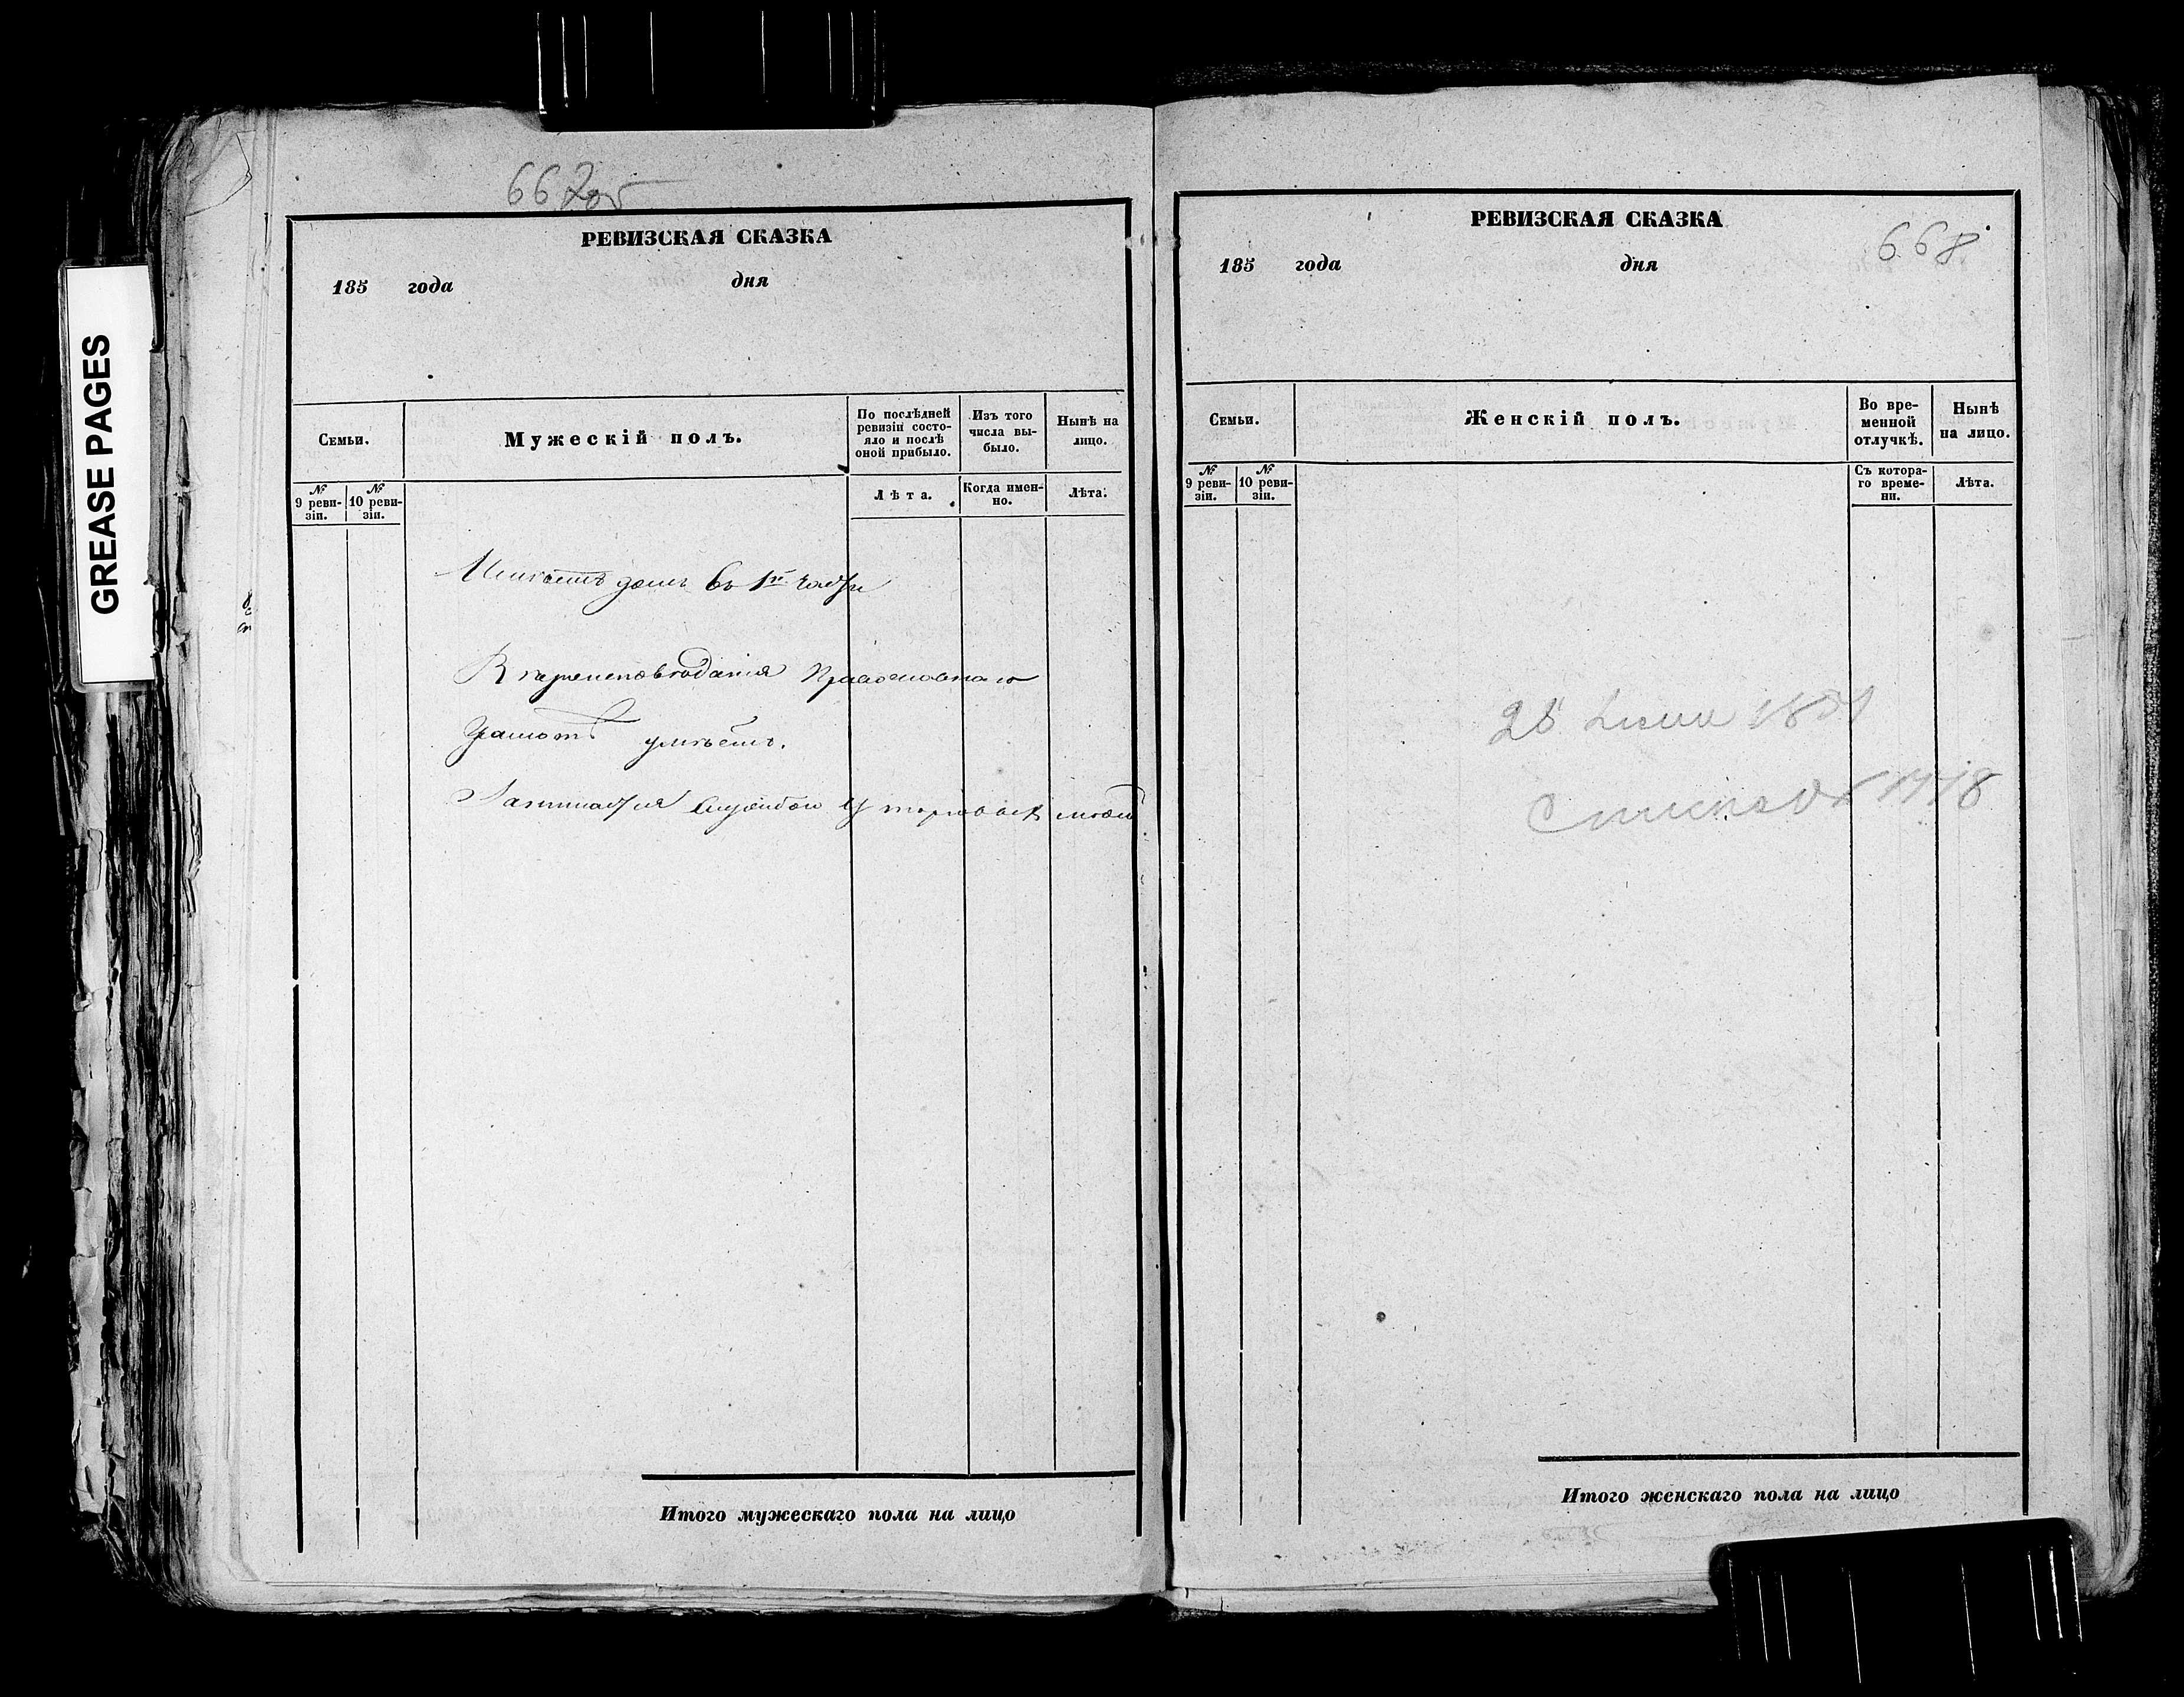 GREASE PAGES
667об
РЕВИЗСКАЯ СКАЗКА
185 года дня
Семьи.
Мужескій полъ.
По послѣдней ревизіи состояло и послѣ оной прибыло.
Изъ того числа выбыло.
Нынѣ на лицо.
№ 9 ревизіи.
№ 10 ревизіи.
Лѣта.
Когда именно.
Лѣта.
Имѣетъ домъ въ 1й части
Вѣроисповѣданія Православнаго
Грамотѣ умѣетъ.
Занимается службою у торговыхъ людей
Итого мужескаго пола на лицо
668
РЕВИЗСКАЯ СКАЗКА
185 года дня
Семьи.
Женскій полъ.
Во временной отлучкѣ.
Нынѣ на лицо.
№ 9 ревизіи.
№ 10 ревизіи.
Съ котораго времени.
Лѣта.
Итого женскаго пола на лицо